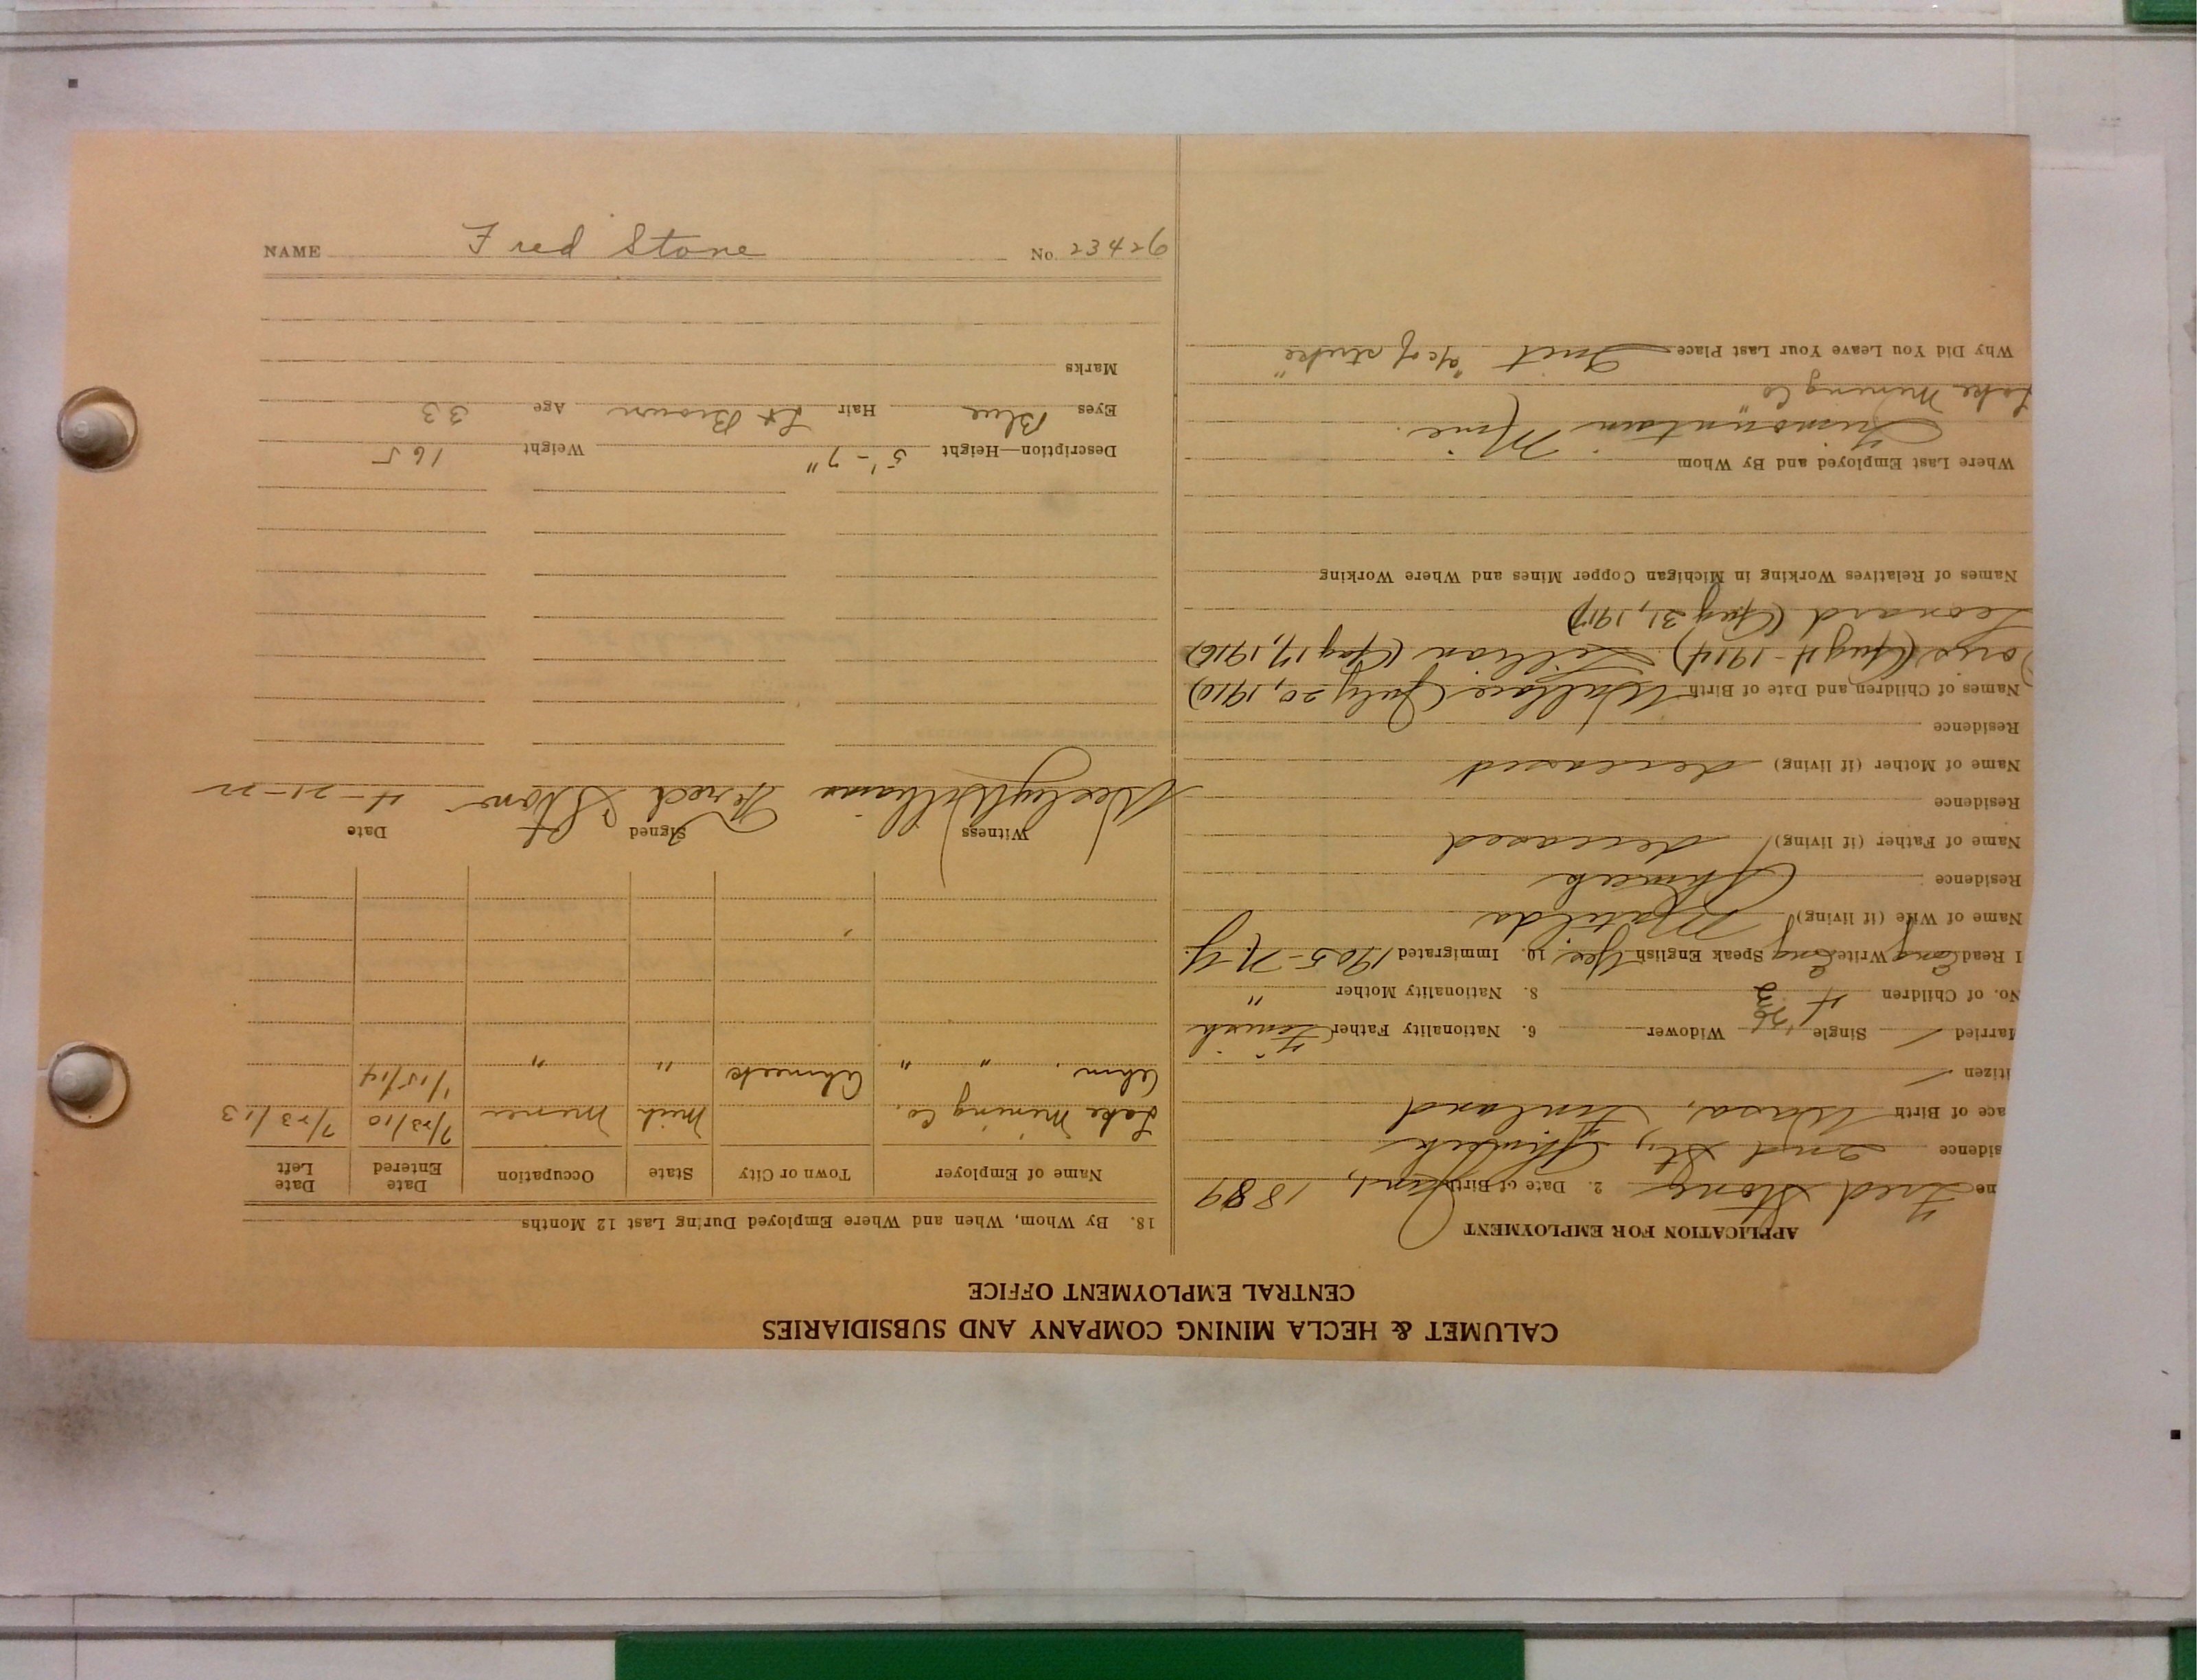 CALUMET & HECLA MINING COMPANY AND SUBSIDIARIES
CENTRAL EMPLOYMENT OFFICE
APPLICATION FOR EMPLOYMENT
ne Fred Stone 2. Date of Birth Jan 1, 1889
sidence 2nd St, Ahmeek
ace of Birth Wasa, Finland
itizen /
arried / Single Widower 6. Nationality Father Finnish
No. of Children 4 8. Nationality Mother "
I Read Eng Write Eng Speak English Yes 10. Immigrated 1905 - N.Y.
Name of Wife (if living) Matilda
Residence Ahmeek
Name of Father (if living) deceased
Residence
Name of Mother (if living) deceased
Residence
Names of Children and Date of Birth Wallace (July 20, 1910)
(Aug 4 - 1914) Lillian (Aug 17, 1916)
Leonard (Aug 31, 1917)
Names of Relatives Working in Michigan Copper Mines and Where Working
Where Last Employed and By Whom
Trimountain Mine
Lake Mining Co
Why Did You Leave Your Last Place Quit "a/c of strike"
18. By Whom, When and Where Employed During Last 12 Months
Name of Employer Town or City State Occupation Date Entered Date Left
Lake Mining Co. Mich Miner 7/23/10 7/23/13
Ahm " " Ahmeek " " 1/15/14
Witness Signed Date
Williams Fered Stone 4-21-22
Description—Height 5'-7" Weight 165
Eyes Blue Hair Lt Brown Age 33
Marks
NAME Fred Stone No. 23426